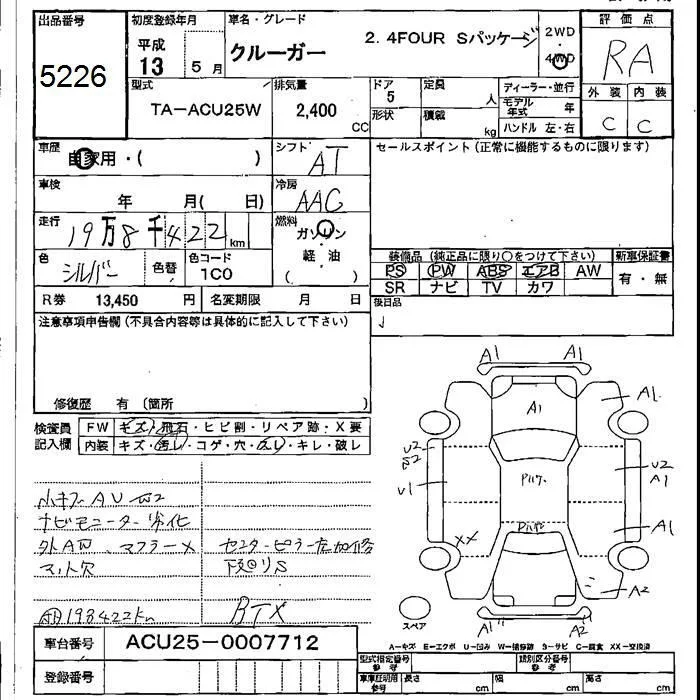 出品番号 初度登録年月 車名・グレード 評価点
平成
5226 13 5月 クルーガー 2.4FOUR Sパッケージ 2WD・4WD RA
型式 排気量 ドア 定員 ディーラー・並行 外装 内装
TA-ACU25W 2,400 CC 5 人 モデル年式 年 C C
形状 積載 kg ハンドル 左・右
車歴 シフト セールスポイント(正常に機能するものに限ります)
自家用・( ) AT
車検 冷房
年 月( 日) AAC
走行 燃料
19万8千422km ガソリン
色 色替 色コード 軽・油
シルバー 1C0 ( )
装備品(純正品に限り○をつけて下さい) 新車保証書
PS PW ABS エアB AW 有・無
SR ナビ TV カワ
R券 13,450 円 名変期限 月 日 後日品
注意事項申告欄(不具合内容等は具体的に記入して下さい)
修復歴 有(箇所
検査員記入欄 FW キズ・飛石・ヒビ割・リペア跡・X要
内装 キズ・汚れ・コゲ・穴・スレ・キレ・破レ
小キズ AU
ナビモニター劣化
外A マフラーメ センターピラー左
マット欠 下廻りS
198422km BTX
A1 A1
A1 A1
U2 U2
A1
U1
A1
XX
A2
A1 A2
スペア
A-キズ E-エクボ U-凹み W-補修跡 S-サビ C-腐食 XX-交換済
車台番号 ACU25-0007712
登録番号
型式指定番号 参考 類別区分番号 参考
車庫証明用 参考 長さ cm 幅 cm 高さ cm